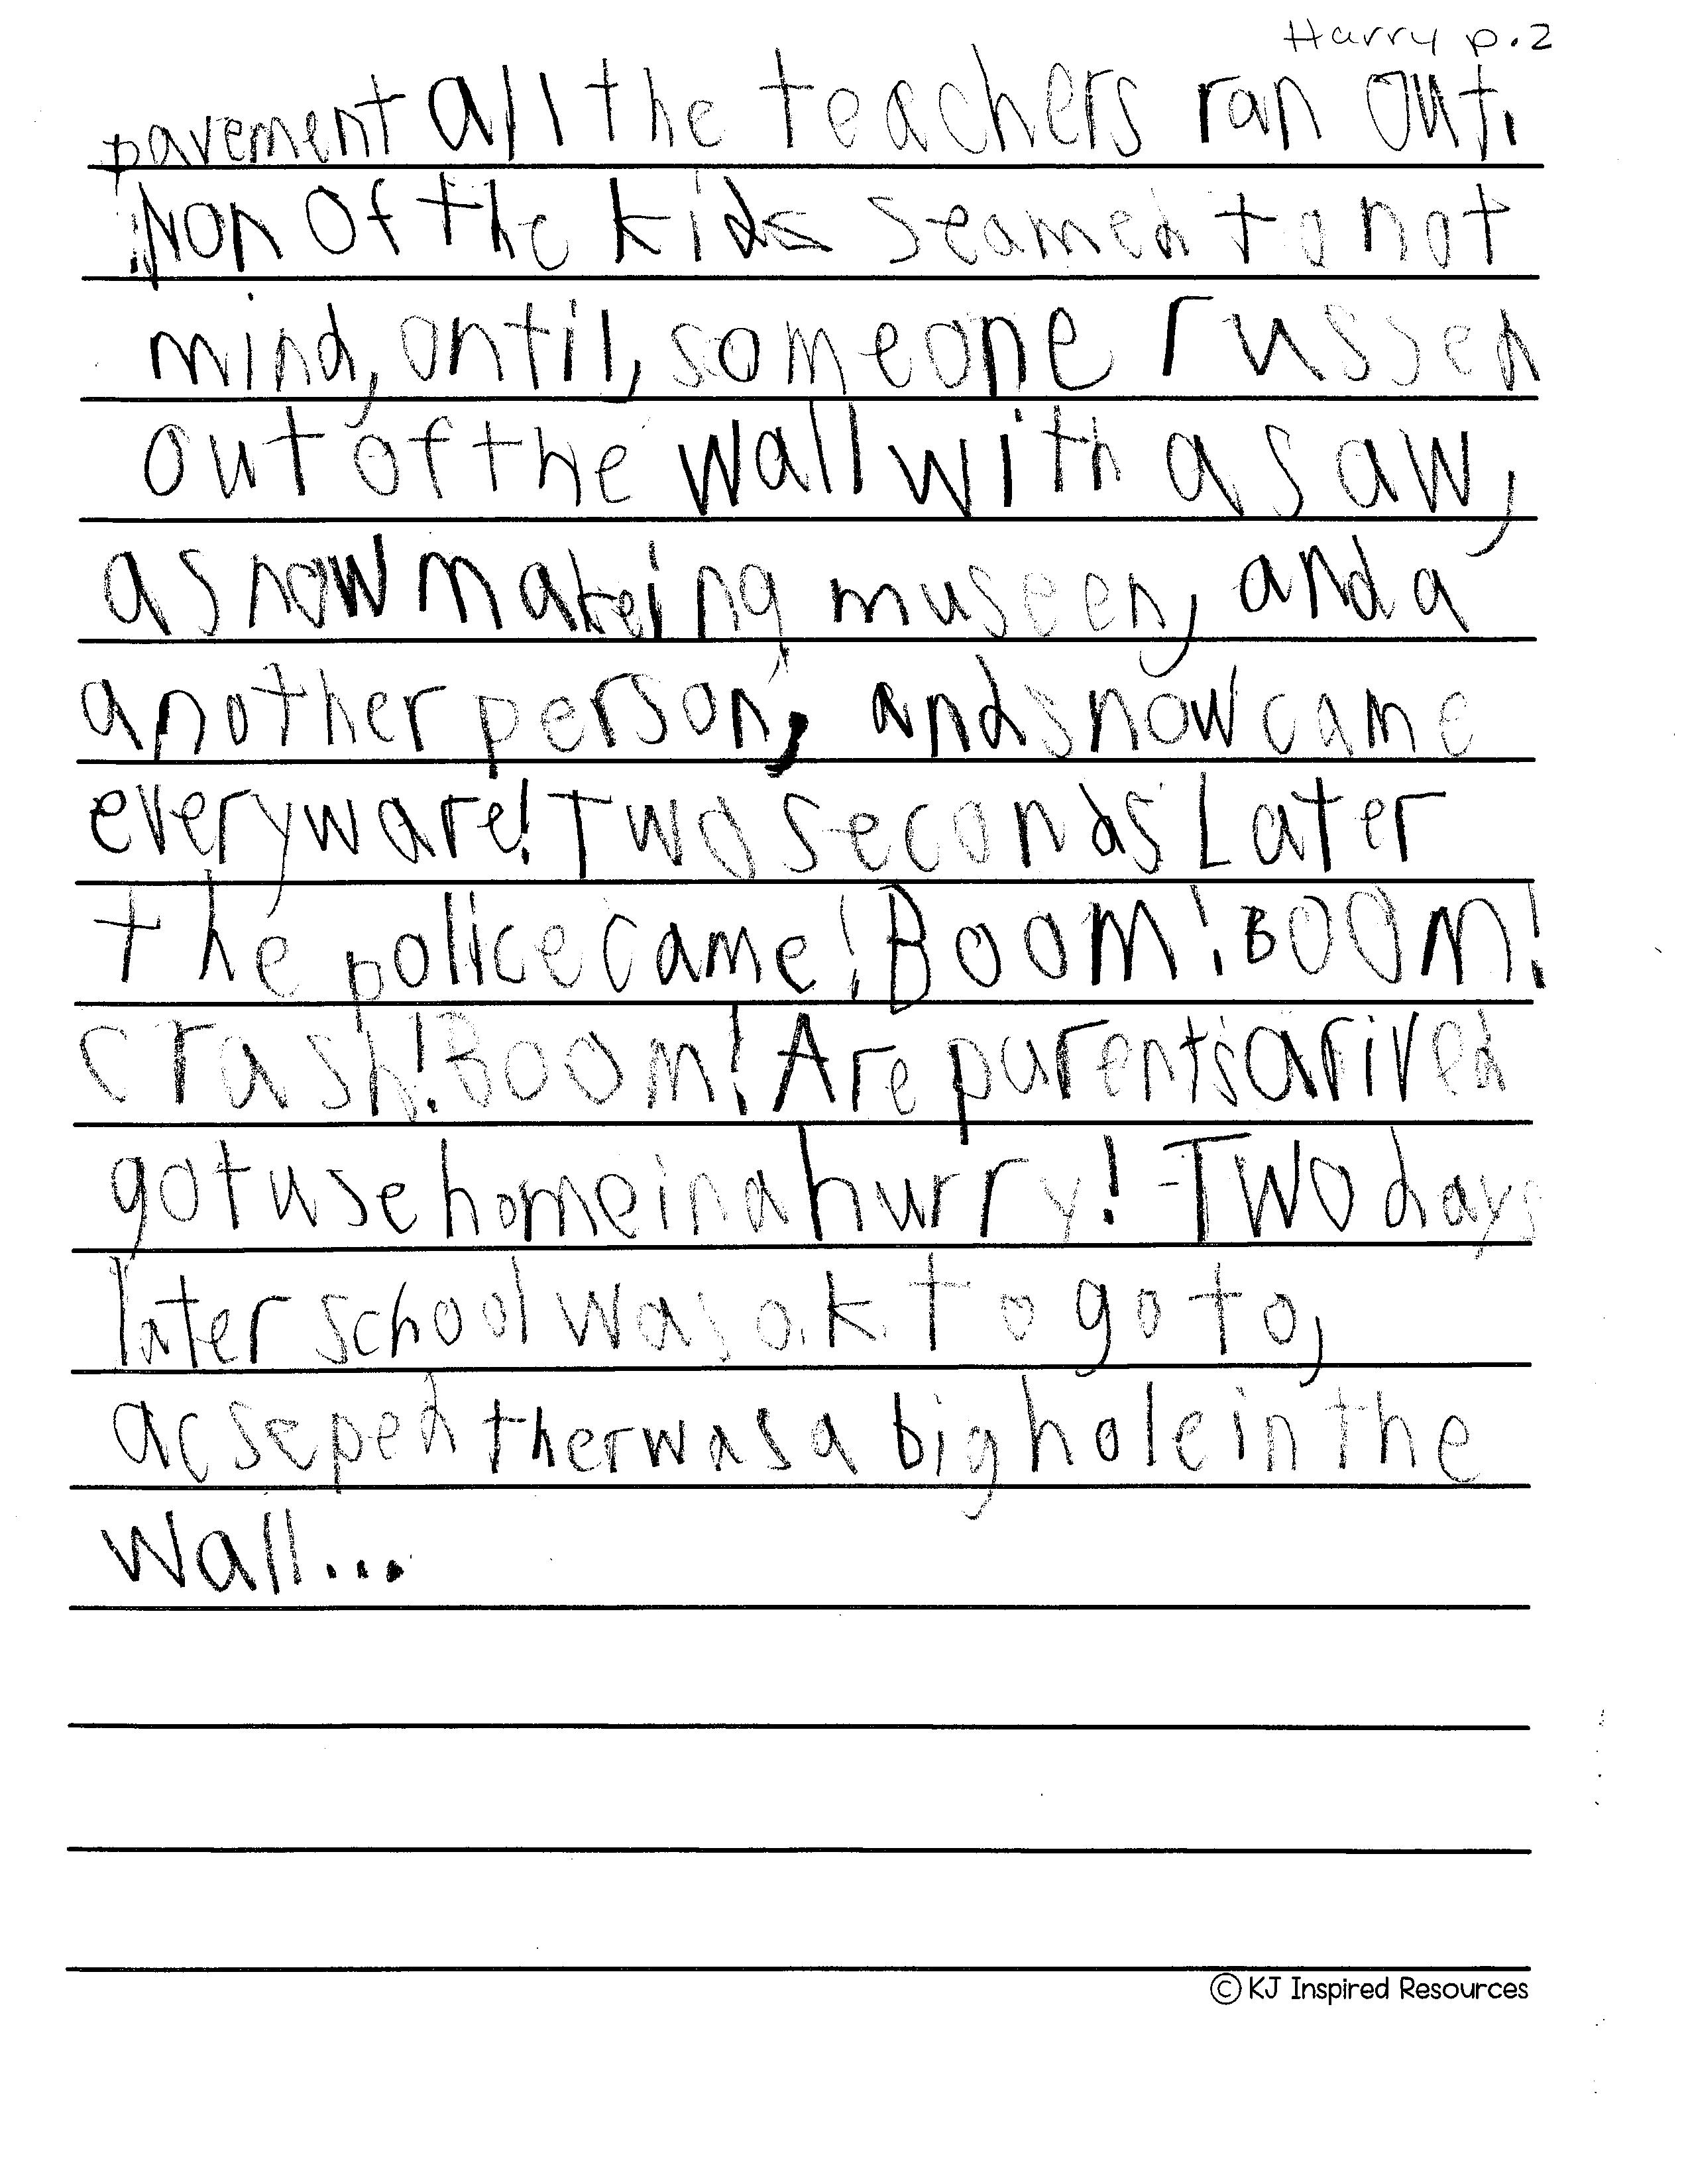 Harry p.2
pavement all the teachers ran out.
Non of the kids seamed to not
mind, ontil, someone russed
out of the wall with a saw,
a snow makeing museen, and a
another person, and snow came
everyware! Two seconds Later
the police came! Boom! Boom!
crash! Boom! Are parents arived
got use home in a hurry! Two days
later school was o.k. to go to,
acseped ther was a big hole in the
wall...
© KJ Inspired Resources